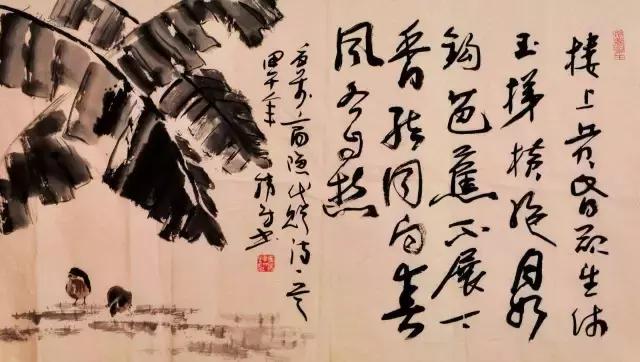 樓上黄昏欲望休
玉梯横绝月如
鈎芭蕉不展丁
香结同向春
风各自愁
商隐代赠诗一首
甲午年 书